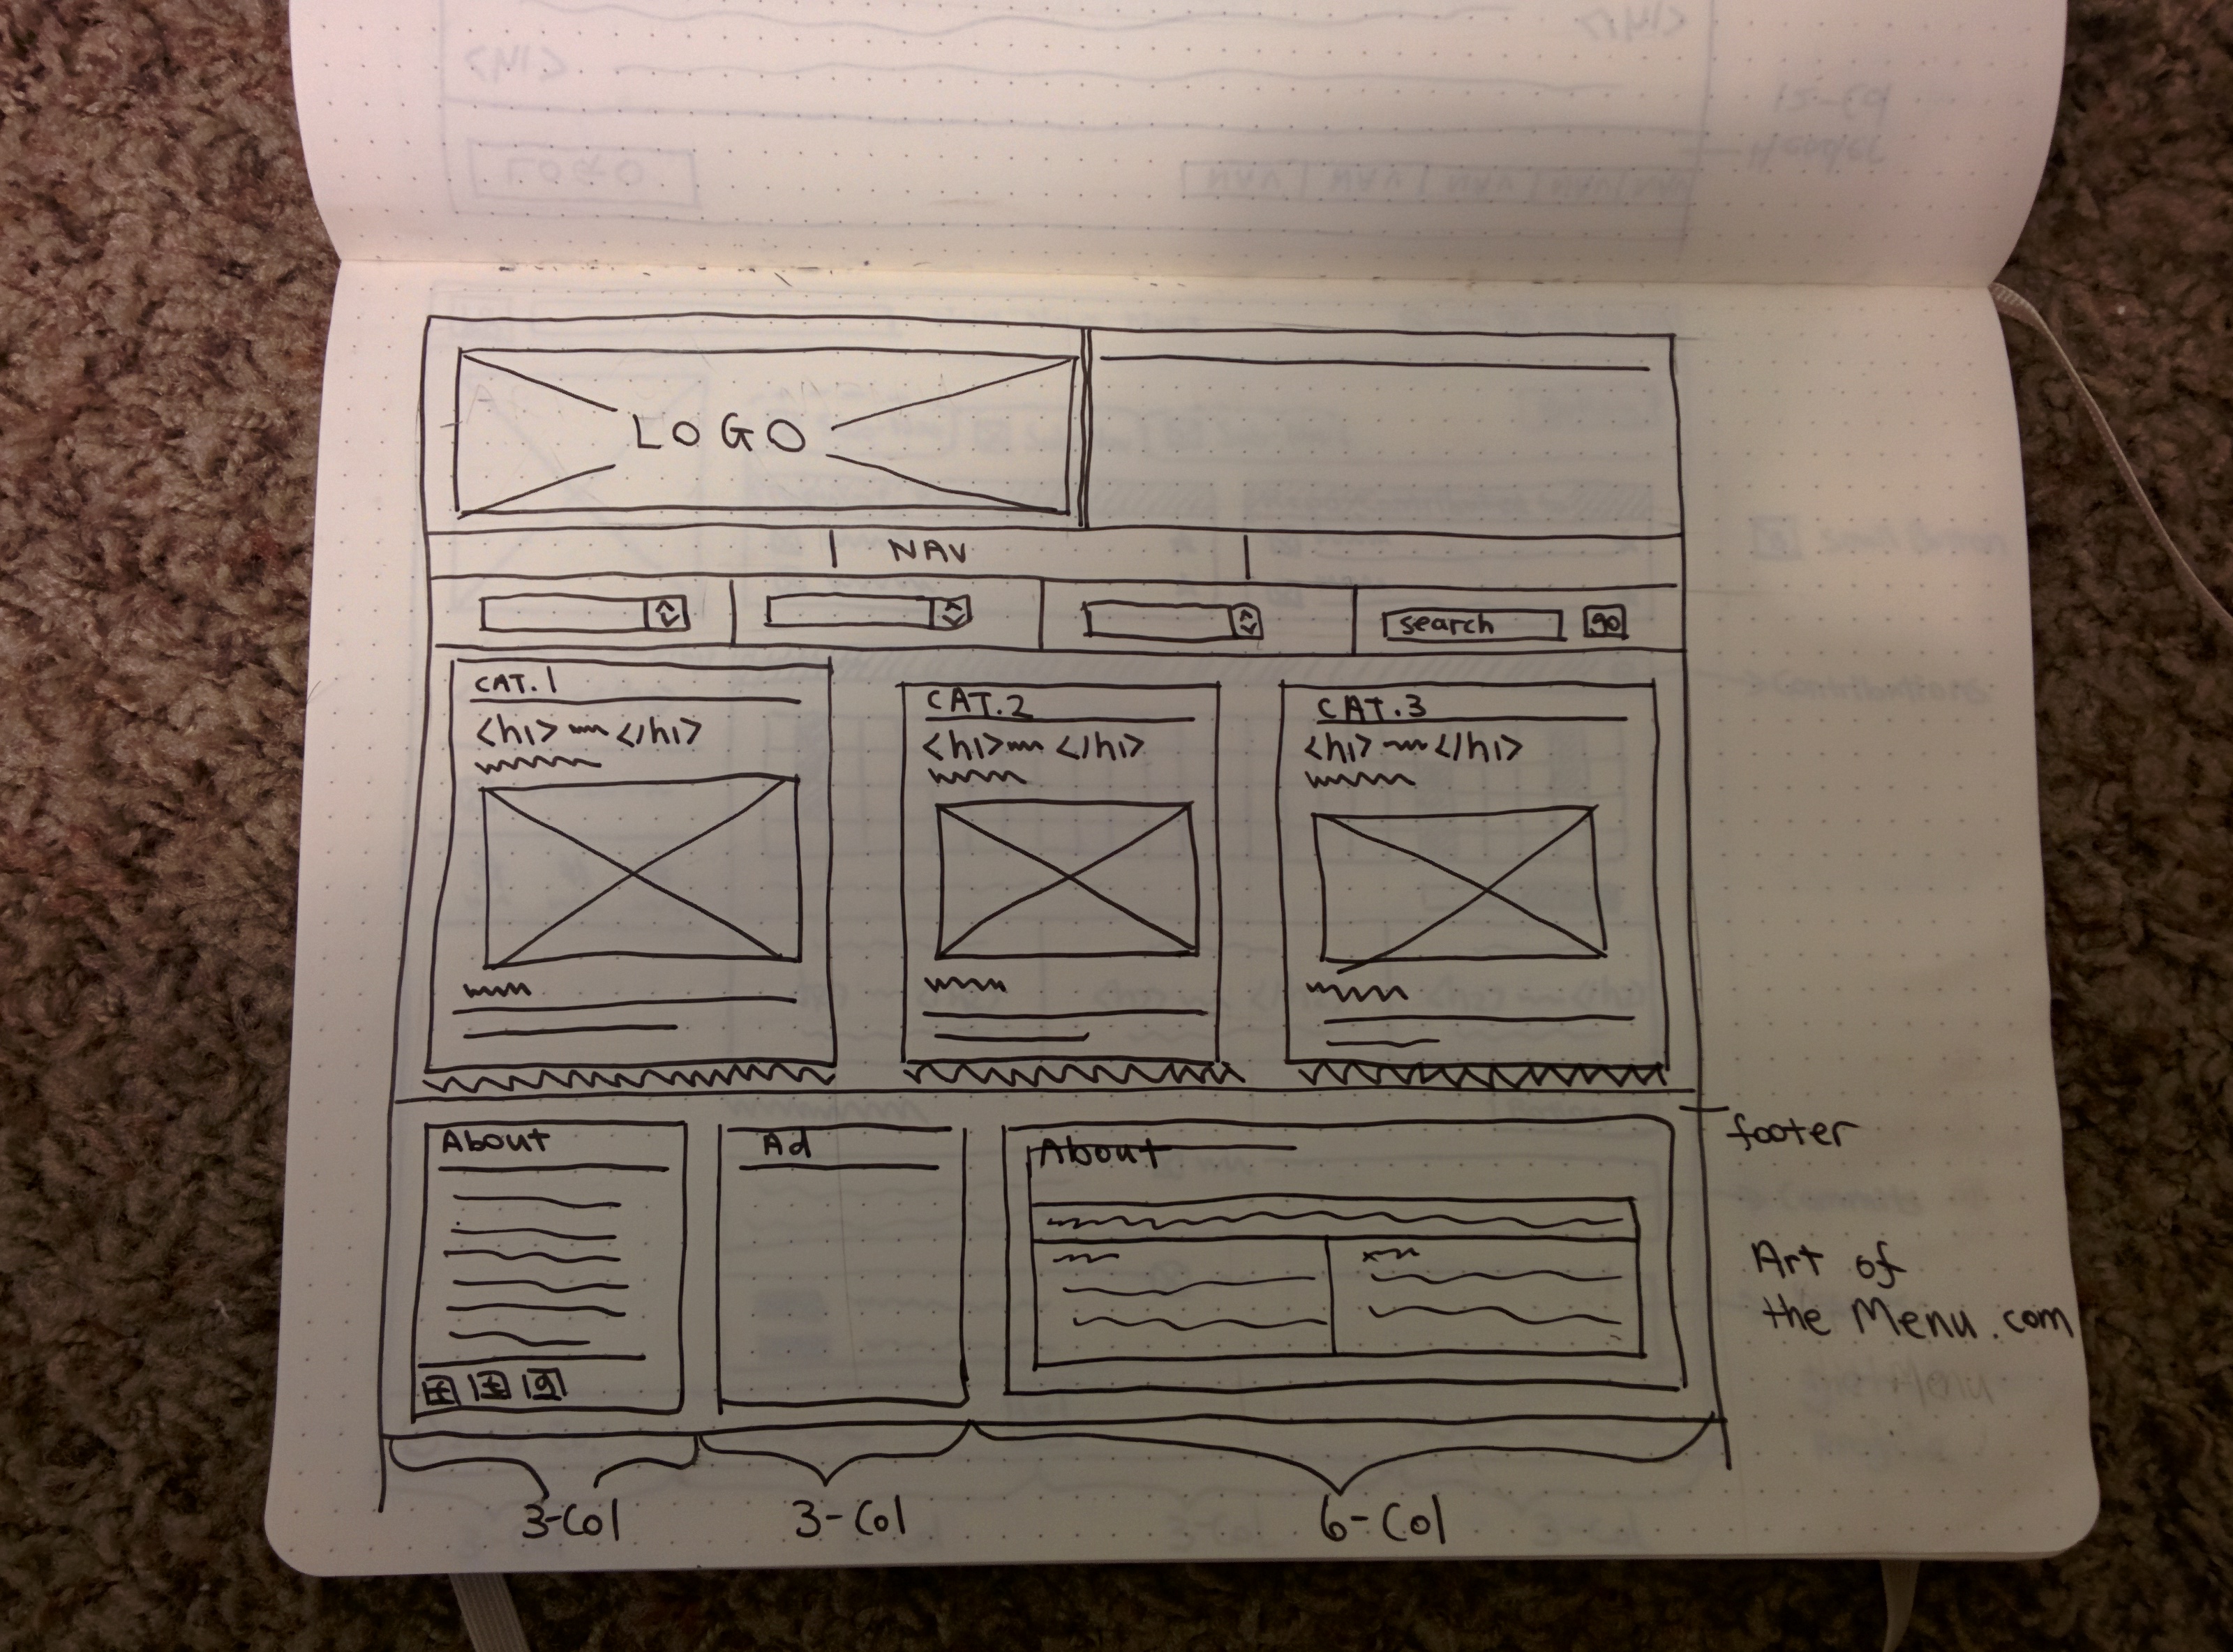 LOGO
NAV
search
go
CAT.1
<h1> </h1>
CAT.2
<h1> </h1>
CAT.3
<h1> </h1>
About
Ad
About
footer
Art of
the Menu.com
3-Col
3-Col
6-Col